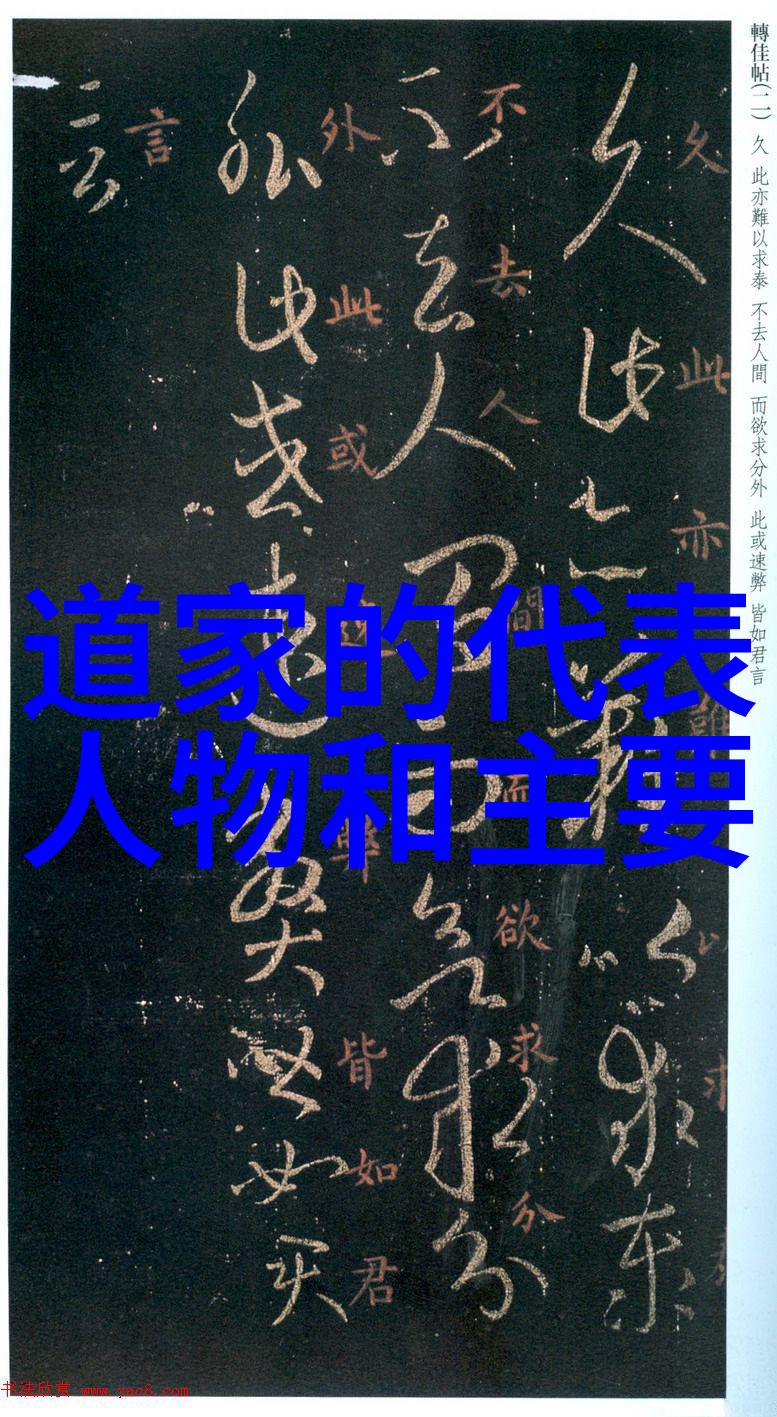 轉佳帖(二) 久 此亦難以求泰 不去人間 而欲求分外 此或速弊 皆如君言
久此亦難以求泰
不去人間而欲求分
外此或速弊皆如君
言
道家的代表
人物和主要
书法欣赏 www.yac8.com